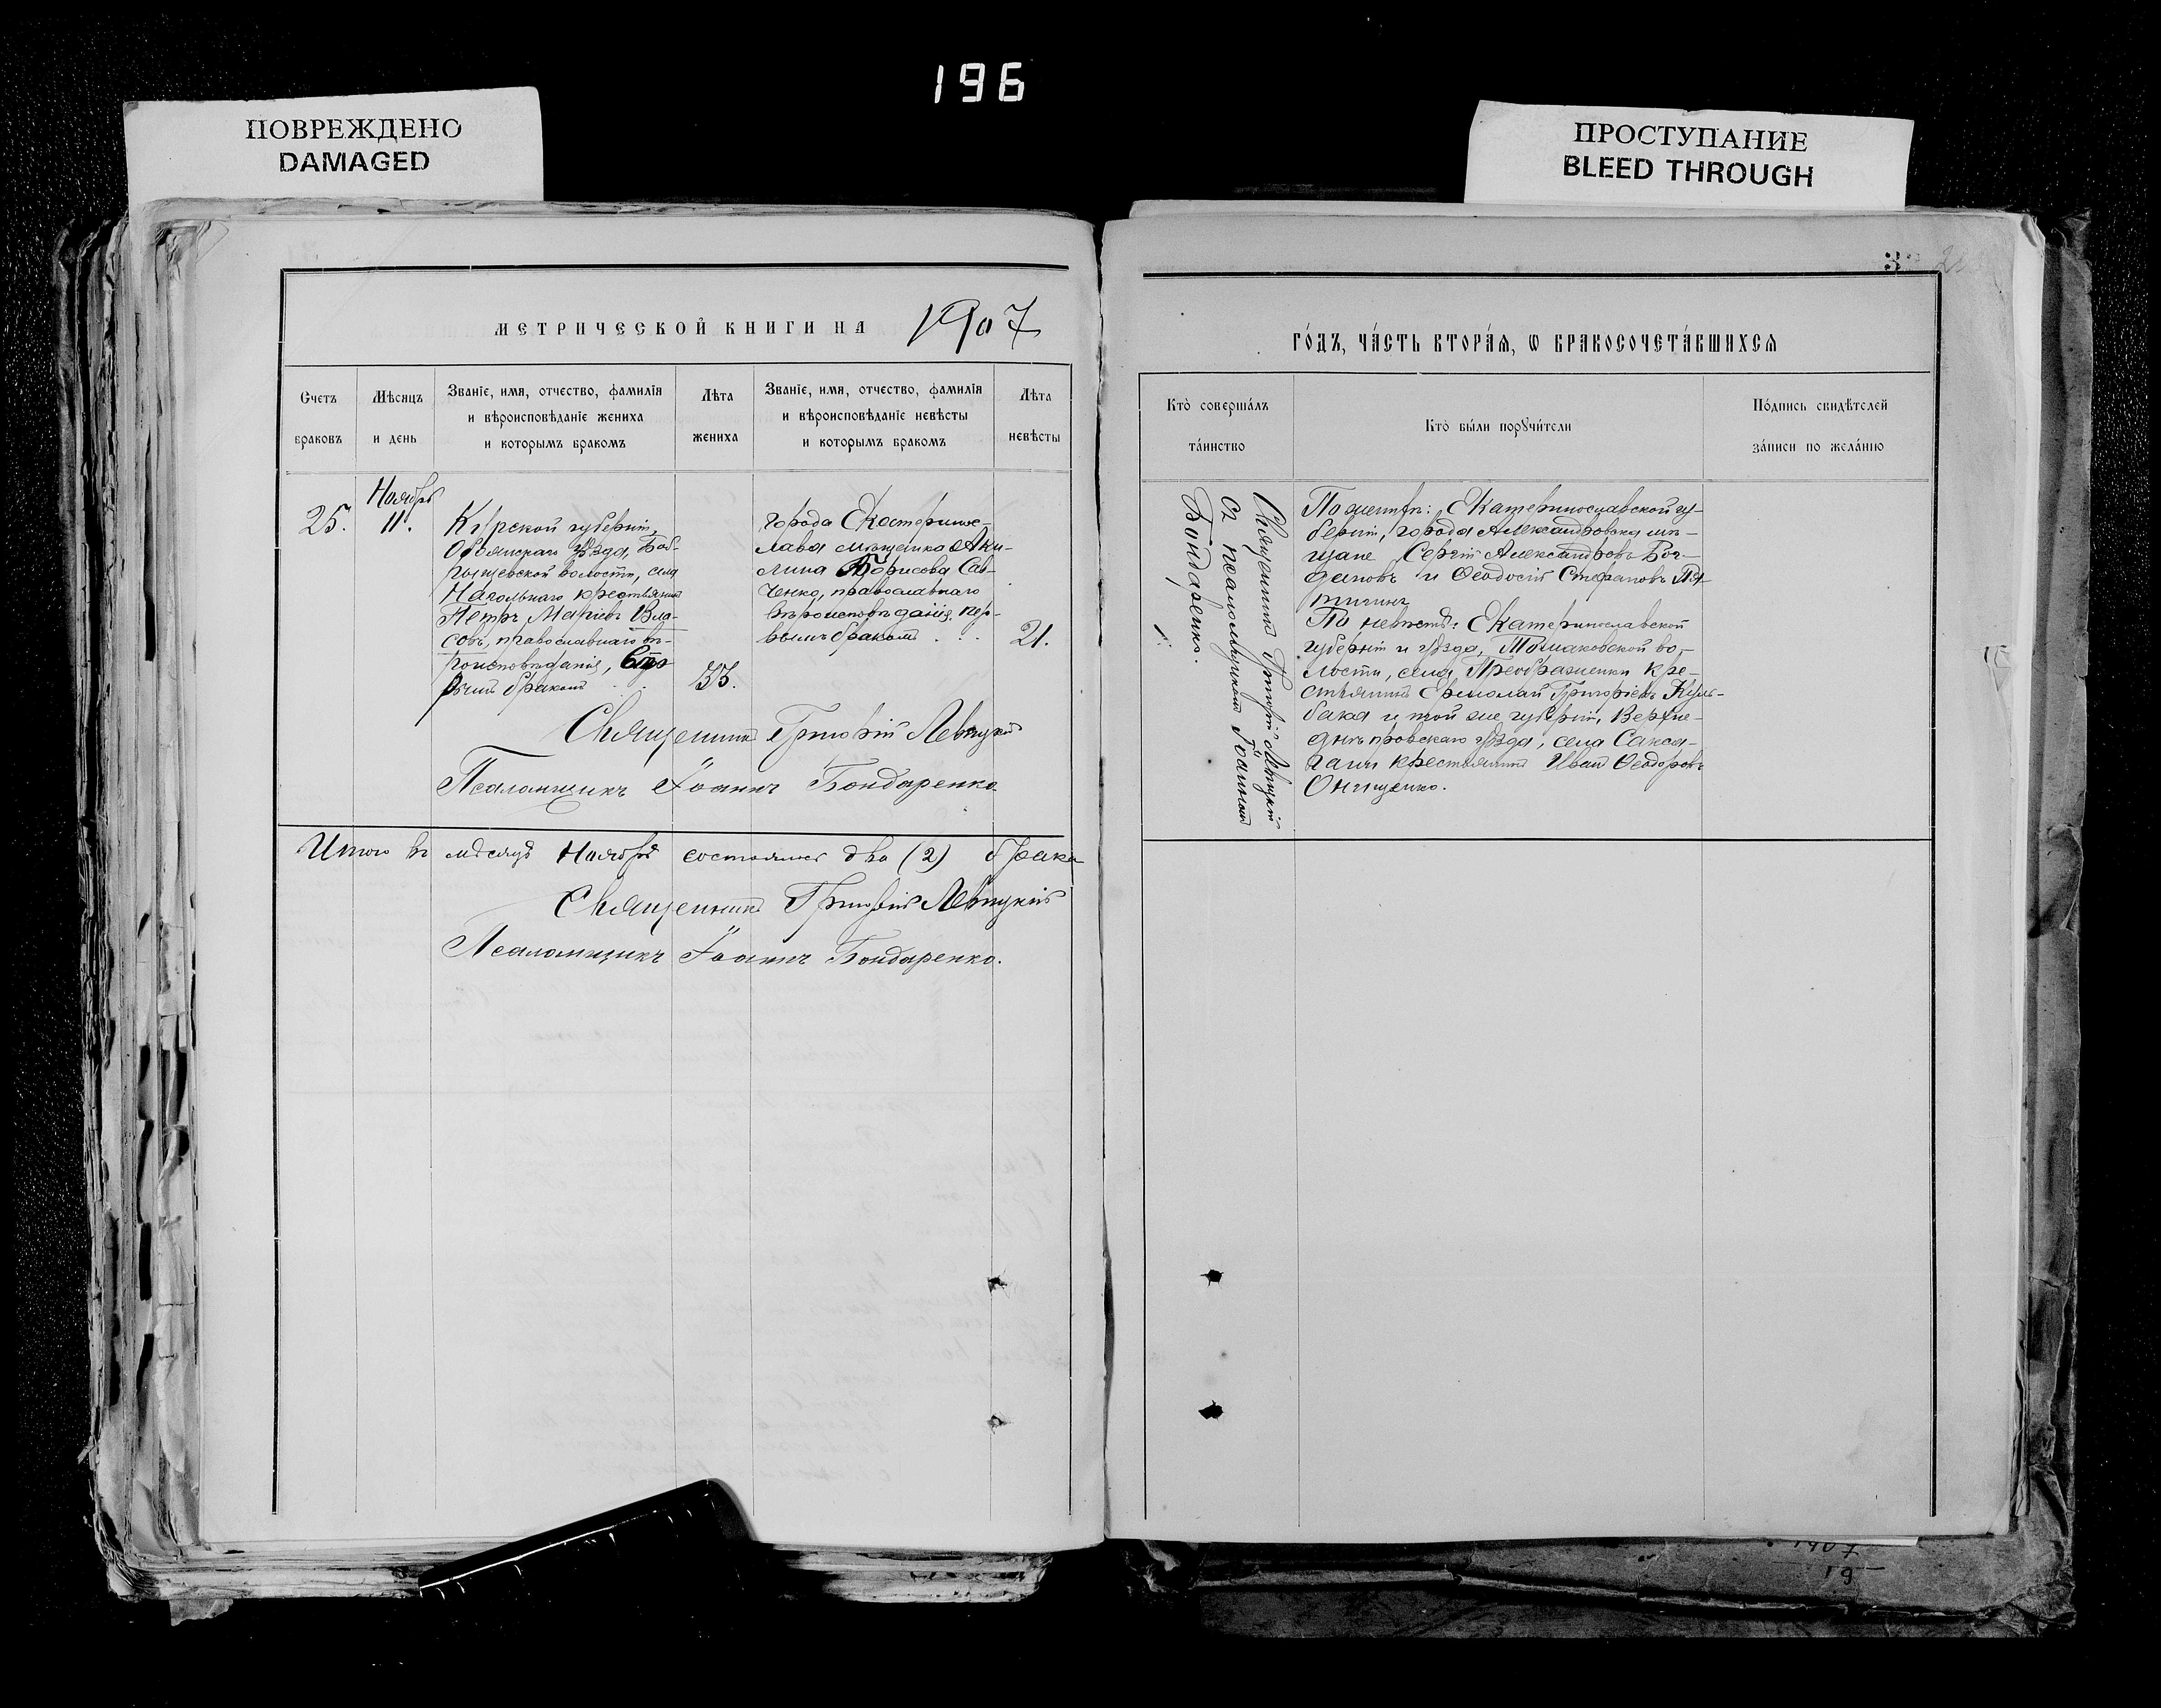 196
ПОВРЕЖДЕНО
DAMAGED
ПРОСТУПАНИЕ
BLEED THROUGH
МЕТРИЧЕСКОЙ КНИГИ НА 1907
Счетъ браковъ
Мѣсяцъ и день
Званіе, имя, отчество, фамилія
и вѣроисповѣданіе жениха
и которымъ бракомъ
Лѣта жениха
Званіе, имя, отчество, фамилія
и вѣроисповѣданіе невѣсты
и которымъ бракомъ
Лѣта невѣсты
25.
Ноября
11.
Курской губерніи,
Обоянскаго уѣзда, Боб-
рышевской волости, села
Нагольнаго крестьянинъ
Петръ Вла-
совъ, православнаго вѣ-
роисповѣданія, Вто-
рымъ бракомъ
33.
города Екатеринос-
лава мѣщанка Аки-
лина Борисова Сав-
ченко, православнаго
вѣроисповѣданія, пер-
вымъ бракомъ
21.
Священникъ Григорій Левицкій
Псаломщикъ Іоаннъ Бондаренко.
Итого въ мѣсяцѣ Ноябрѣ состоялось два (2) брака
Священникъ Григорій Левицкій
Псаломщикъ Іоаннъ Бондаренко.
3
ГО́ДЪ, ЧА́СТЬ ВТОРА́Я, Ѡ БРАКОСОЧЕТА́ВШИХСЯ
Кто̀ соверша́лъ
та́инство
Кто̀ бы́ли порꙋчи́тели
По́дпись свидѣ́телей
за́писи по жела́нію
Священникъ Григорій Левицкій
съ псаломщикомъ Іоанномъ
Бондаренко.
По женихѣ: Екатеринославской гу-
берніи, города Александровска мѣ-
щане Сергій Александровъ Бог-
дановъ и Ѳеодосій Стефановъ
По невѣстѣ: Екатеринославской
губерніи и уѣзда, Томаковской во-
лости, села Преображенки кре-
стьянинъ Ермолай Григоріевъ Куль-
бака и той же губерніи, Верхне-
днѣпровскаго уѣзда, села Сакса-
гани крестьянинъ Иванъ Ѳеодоровъ
Онищенко.
1907
19